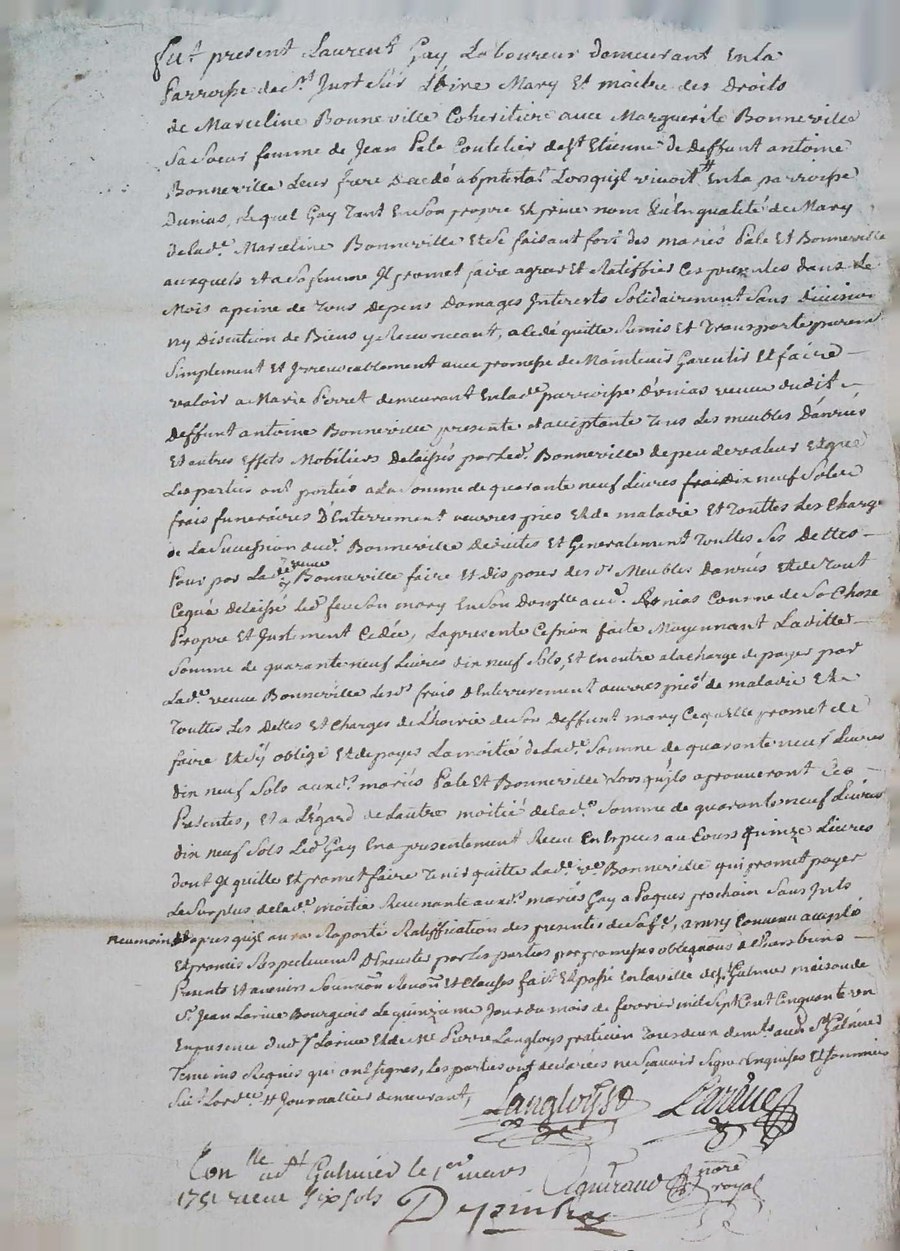 fut present Laurent Gay Laboureur demeurant En la
Parroisse de St Just Sur Loire Mary Et maitre des Droits
de Marceline Bonneville Coheritiere avec Marguerite Bonneville
Sa Soeur femme de Jean Pale Coutelier de St Etienne de deffunt antoine
Bonneville Leur frere Decedé abintestat Lorsquyl vivoit # En la parroisse
Dunias, Lequel Gay Tant En Son propre Et prive nom qu'En qualité de Mary
de lad.e Marceline Bonneville Et Se faisant fort des mariés Pale Et Bonneville
auxquels et a Sa femme Jl promet faire agreer Et Ratiffier Ces presentes dans Le
Mois a peine de Tous Depens Domages Interests Solidairement Sans Division
ny Discution de Biens y Renonceant, a Cedé quitte Remis Et Transporte purem.t
Simplement Et Irrevocablement avec promesse de Maintenir Garentir Et faire
valoir a Marie Perret demeurant En lad.e parroisse Dunias veuve dudit
Deffunt antoine Bonneville presente et acceptante Tous Les meubles Danrées
Et autres Effets Mobiliers Delaissés par led. Bonneville de peu de valeur Et que
Les parties ont portées a la Somme de quarante neuf Livres dix neuf Sols
frais funeraires D'Enterrement oeuvres pies Et de maladie Et Touttes Les Charges
de La Succession dud. Bonneville Et Generalement Touttes Ses Dettes
Pour par La de veuve Bonneville faire Et disposer des d.s Meubles Danrées Et de Tout
Ce qua delaissé led. feu Son mary En Son aud. unias Comme de Sa Chose
Propre Et Justment Cedée, La presente Cession faite Moyennant Laditte
Somme de quarante neuf Livres dix neuf Sols, Et En outre a la charge de payer par
Lad.e veuve Bonneville Lesd.s frais d'Enterrement oeuvres pies de maladie Et
Touttes Les Dettes Et Charges de L'hoirie de Son Deffunt mary Ce quelle promet de
faire Et S'y oblige Et de payer La moitié de lad.e Somme de quarante neuf Livres
dix neuf Sols auxd. mariés Pale Et Bonneville Lorsquyls aprouveront Ces
Presentes, Et a L'Egard de Lautre moitié de lad.e Somme de quarante neuf Livres
dix neuf Sols Led. Gay En a presentement Receu En Espèces au Cours quinze Livres
dont Jl quitte Et promet faire Tenir quitte Lad.e v.e Bonneville qui promet payer
Le Surplus de lad.e moitié Revenante auxd. mariés Gay a Paques prochain Sans Jnts
neumoins apres quyl aura Raporté Ratiffication des presentes de Sa f.e, ainsy Convenu accepté
Et promis Respectivement D'Executer par les parties par promesses obligeaons de Leurs biens
Presents Et avenirs Soumiôn Renonôn Et Clauses fait Et passé En la ville de St Galmier maison de
Sr Jean Larive Bourgeois Le quinzieme Jour du mois de fevrier mil Sept Cent Cinquante un
En presence dud. Sr Larive Et de Me Pierre Langloys praticien Tous deux dem.ts aud. St Galmier
Temoins Requis qui ont Signes, Les parties ont declarées ne Scavoir Signer Enquises Et Sommées
Sui.t Lord.ce # Journallier demeurant,
Langloys Larive
Con.lle a St Galmier le 1er mars
1751 receu Six Sols
Guiraud nore royal